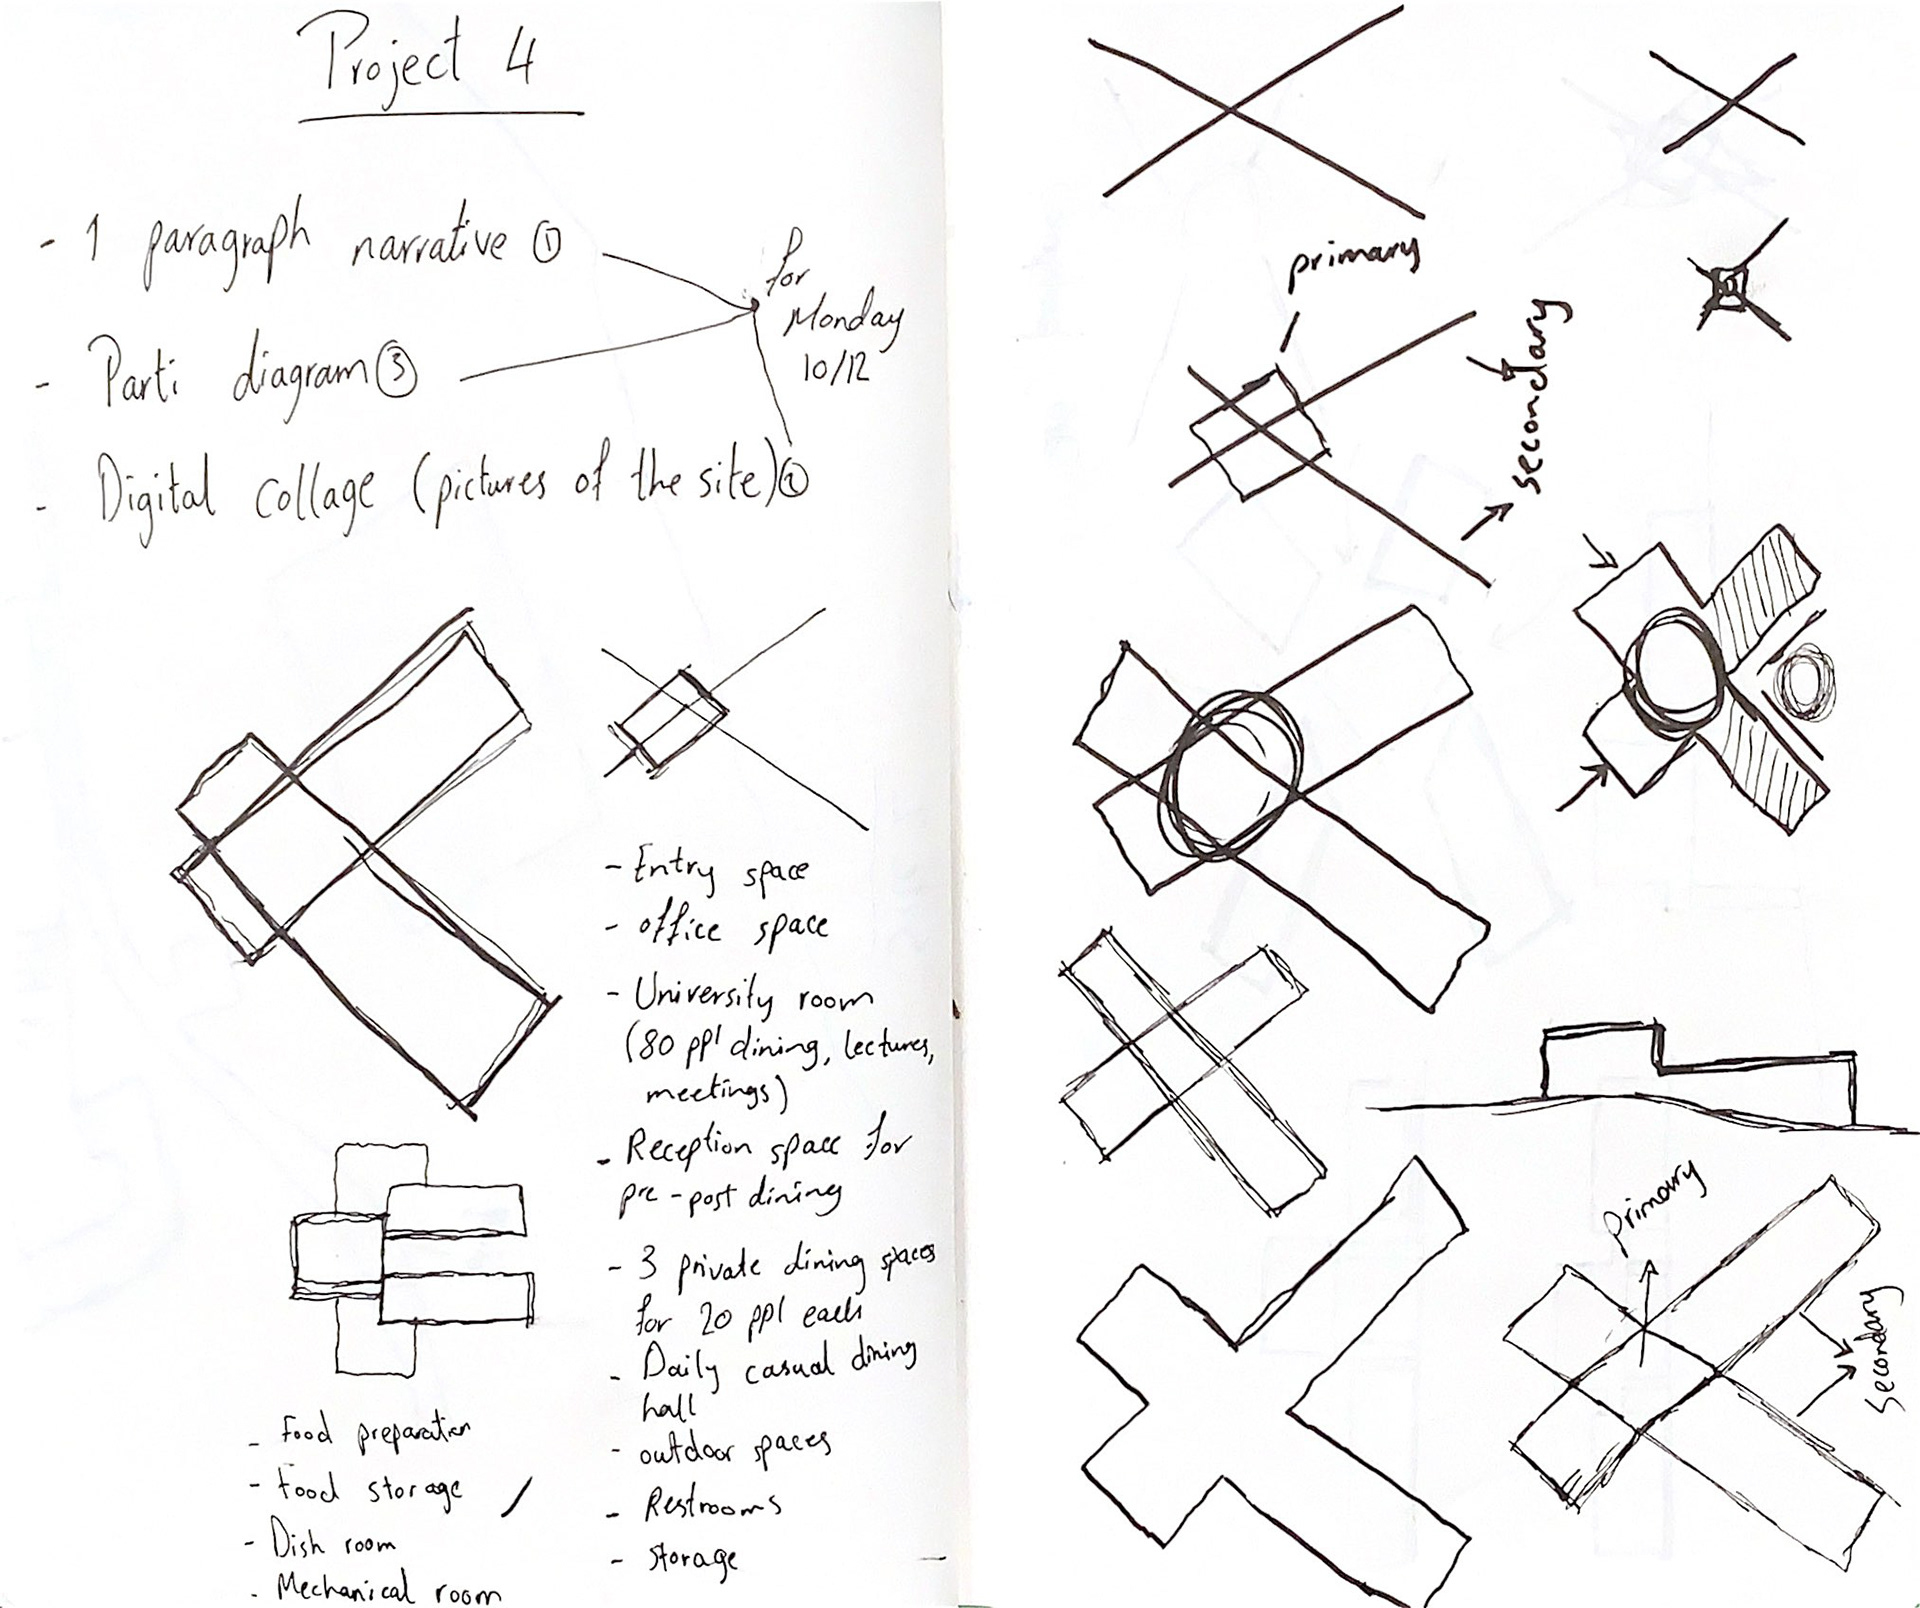 Project 4
- 1 paragraph narrative ①
- Parti diagram ③
- Digital collage (pictures of the site) ②
for
Monday
10/12
- Entry space
- office space
- University room
(80 ppl dining, lectures,
meetings)
- Reception space for
pre-post dining
- 3 private dining spaces
for 20 ppl each
- Daily casual dining
hall
- outdoor spaces
- Restrooms
- storage
- Food preparation
- Food storage
- Dish room
- Mechanical room
primary
secondary
Primary
Secondary